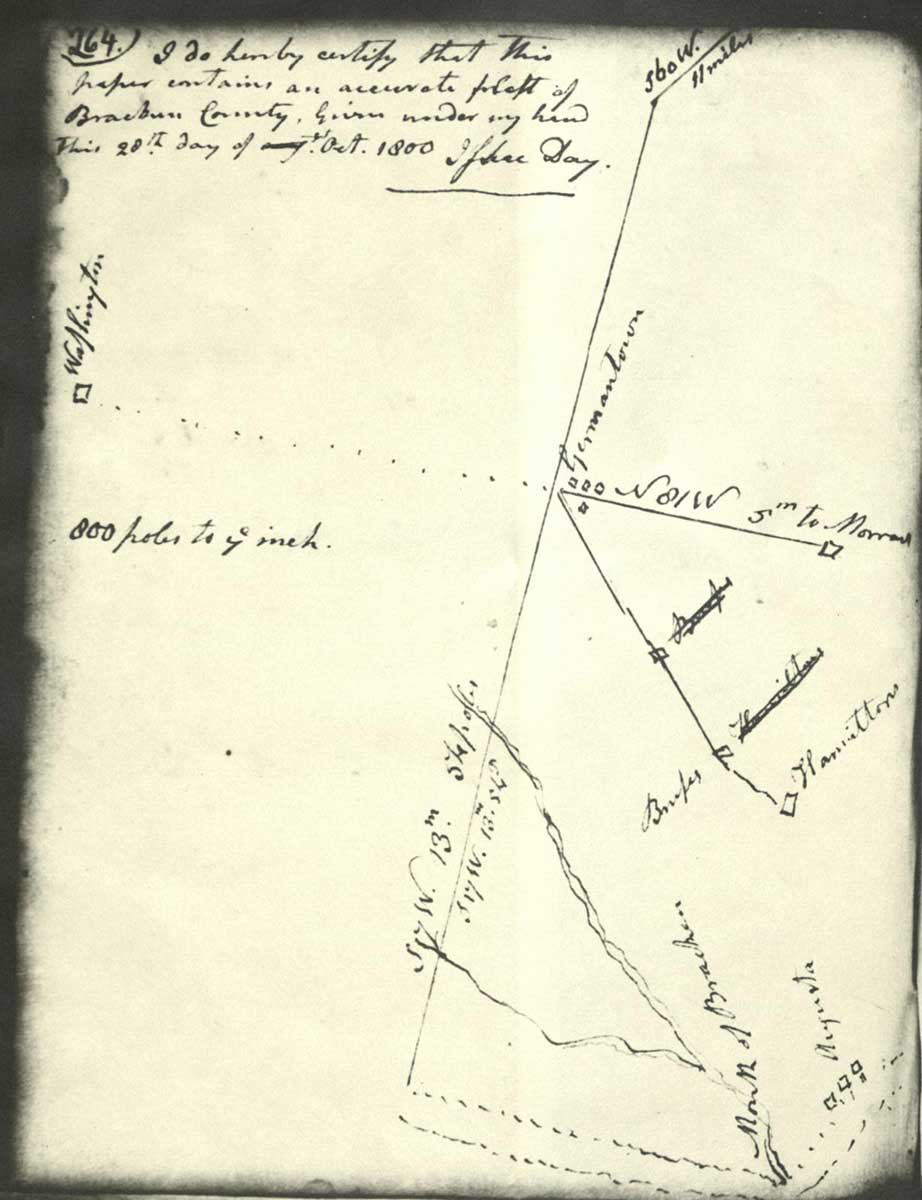 264.) I do hereby certify that this
paper contains an accurate platt of
Bracken County, Given under my hand
this 28th day of Oct. 1800 Day.
S60W.
11 miles
Washington
Germantown
N81W 5m to
800 poles to ye inch.
Hamiltons
Hamiltons
54 poles
S17W. 13m
S17W. 13m
Mouth of Bracken
Augusta